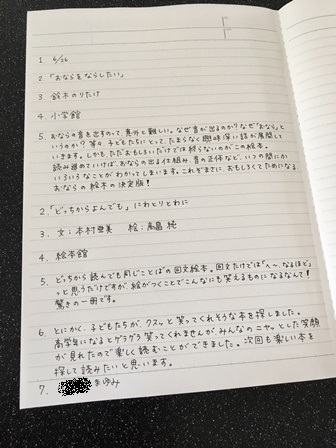 1 6/26
2 「おならをならしたい」
3 鈴木のりたけ
4 小学館
5 おならの音を出すのって、意外と難しい。なぜ音が出るのか?なぜ「おなら」と
いうのか?等々 子どもたちにとって、たまらなく興味深い話が展開して
いきます。しかも、ただおもしろいだけでは終らないのがこの絵本。
読み進めていけば、おならの出る仕組み、音の正体など、いつの間にか
いろいろなことがわかってしまいます。これもまさに、おもしろくてためになる
おならの絵本の決定版!
2.「どっちからよんでも」にわとりとわに
3. 文:本村亜美 絵:高畠純
4. 絵本館
5. どっちから読んでも同じことばの回文絵本。回文だけでは「へ〜、なるほど」
っと思うだけですが、絵がつくことでこんなにも笑えるものになるなんて!
驚きの一冊です。
6. とにかく、子どもたちが、クスッと笑ってくれそうな本を探しました。
高学年になるとゲラゲラ笑ってくれませんが、みんなのニヤッとした笑顔
が見れたので楽しく読むことができました。次回も楽しい本を
探して読みたいと思います。
7. まゆみ